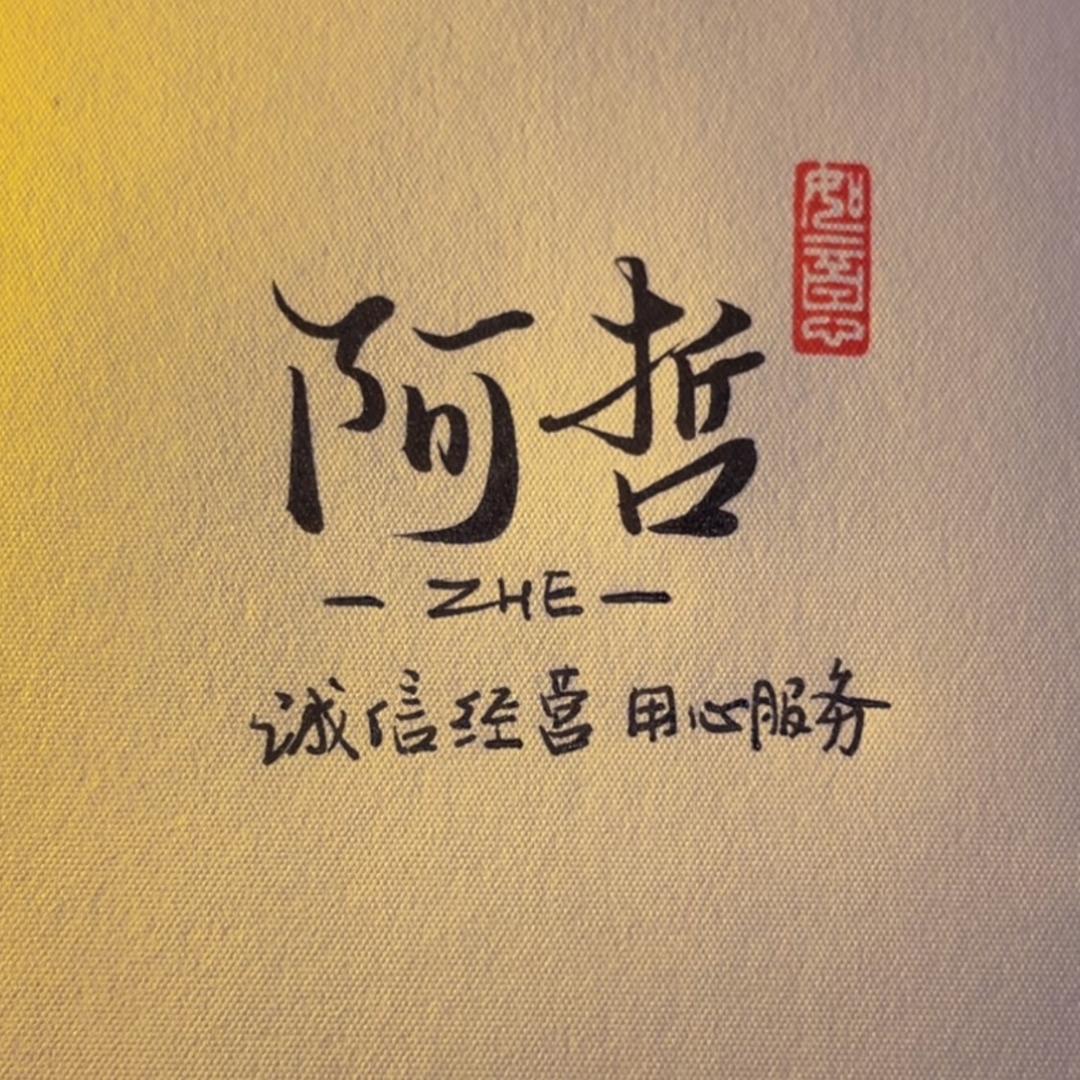 阿哲
— ZHE —
诚信经营 用心服务